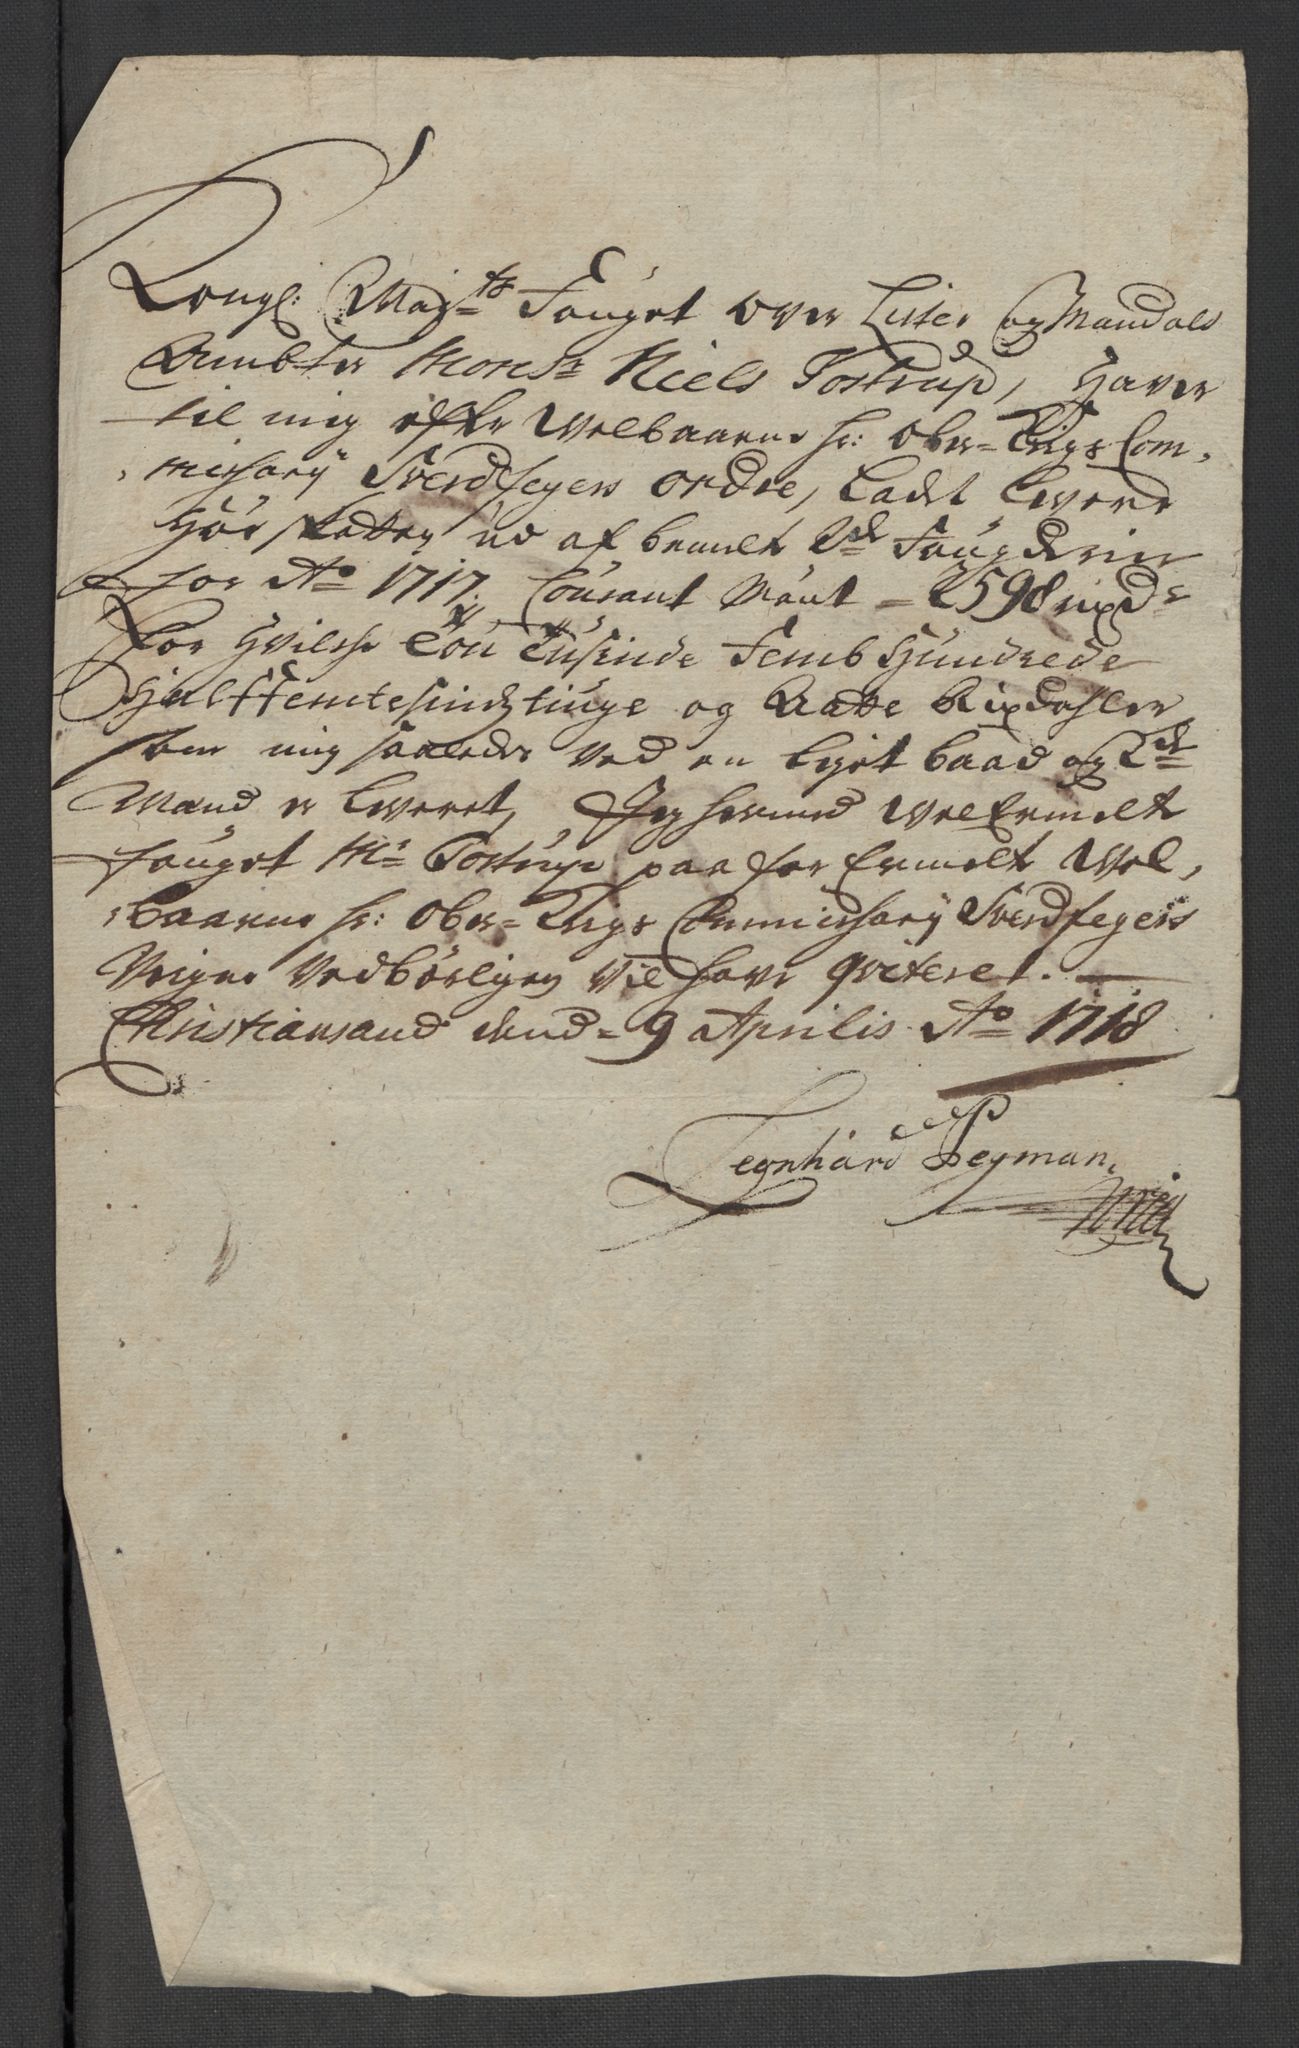 Kongl: Maj:ts Fouget over Lister og Mandals
Ambter Monsr Niels Tostrup, Haver
til mig efter Welbaarne hr: Ober-Krigs Com,
missarij Sverdfegers ordre, Ladet levere
Höe skatten ud af bemelte 2de Fougderier
for Ao 1717. Courant Mönt - 2598 rixdr
For Hvilche Tou Tusinde Femb Hundrede
Hjalffemtesindztiuge og Aatte Rixdahler
som mig saaledes ved en leyet baad og 2de
Mand er leveret, Jeg hermed Velbemelte
fouget Mr Tostrup paa for bemelte Wel,
baarne hr: Ober-Krigs Commissarij Sverdfegers
Veigne Vedbörligen vil have qviteret. —
Christiansand dend - 9 Aprilis Ao 1718
Legnhard Pegman,